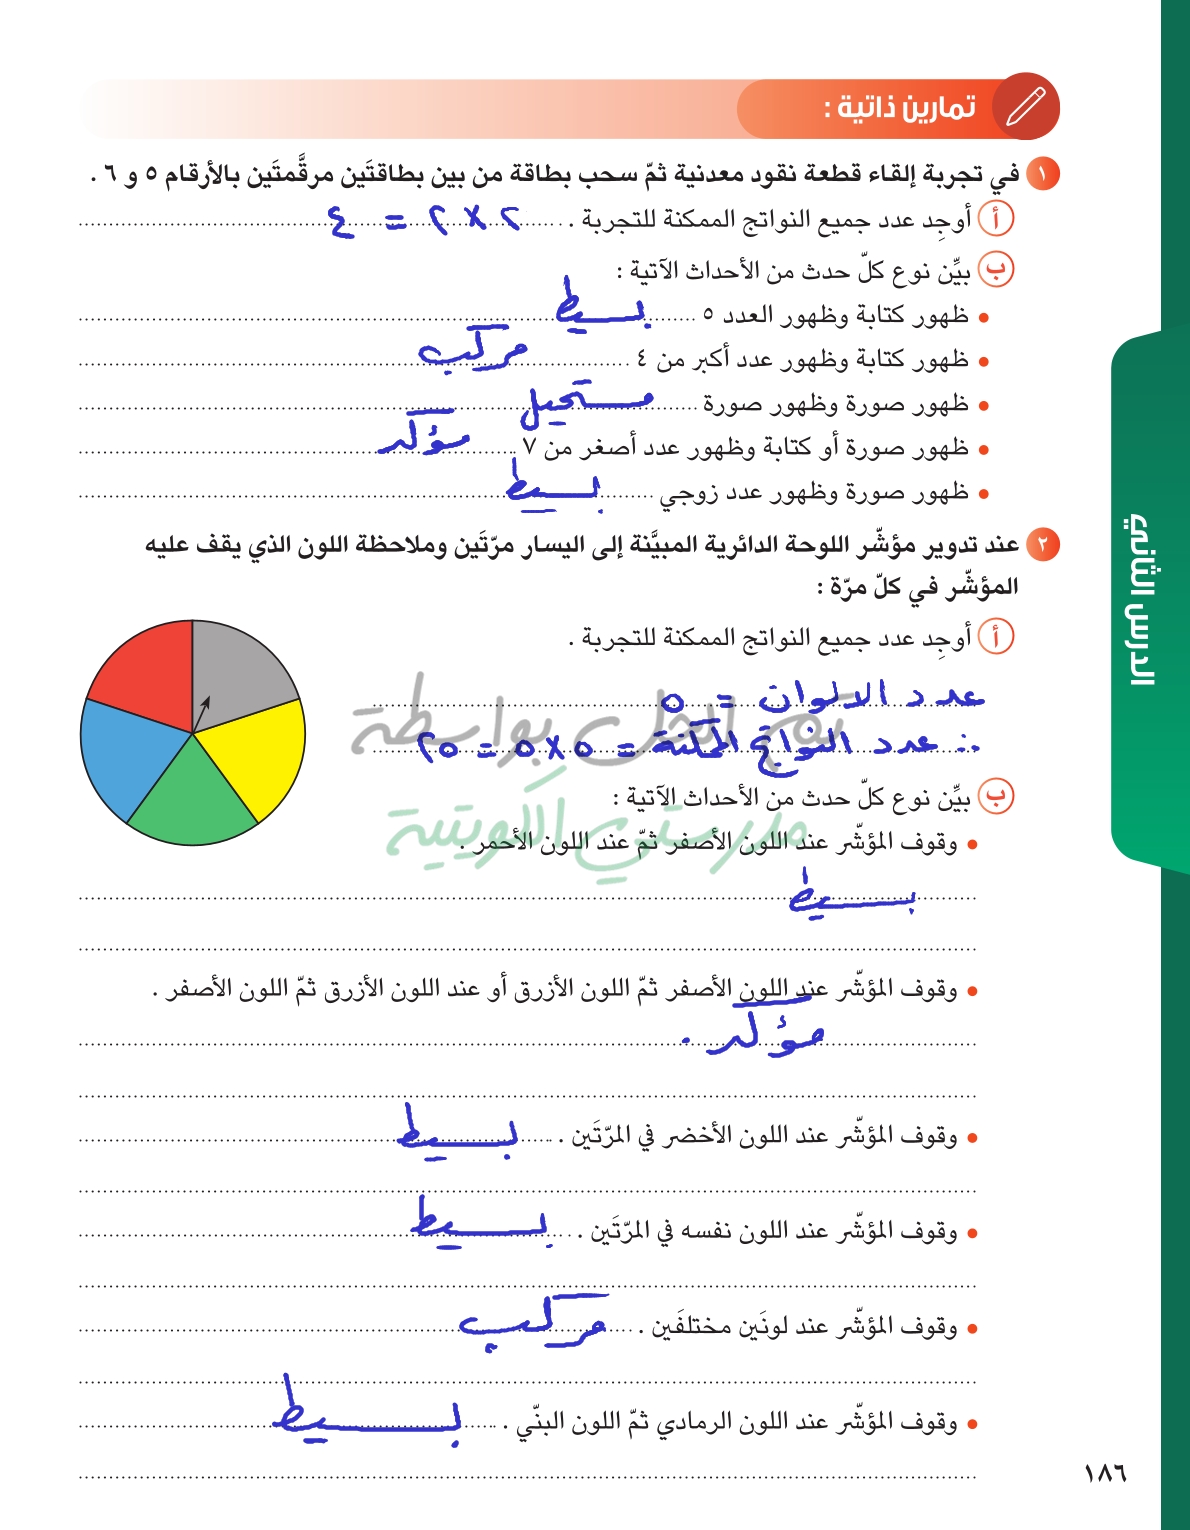 تمارين ذاتية :
١ في تجربة إلقاء قطعة نقود معدنية ثمّ سحب بطاقة من بين بطاقتَين مرقَّمتَين بالأرقام ٥ و ٦ .
أ أوجِد عدد جميع النواتج الممكنة للتجربة . ٢ × ٢ = ٤
ب بيِّن نوع كلّ حدث من الأحداث الآتية :
• ظهور كتابة وظهور العدد ٥ بسيط
• ظهور كتابة وظهور عدد أكبر من ٤ مركب
• ظهور صورة وظهور صورة مستحيل
• ظهور صورة أو كتابة وظهور عدد أصغر من ٧ مؤكد
• ظهور صورة وظهور عدد زوجي بسيط
٢ عند تدوير مؤشّر اللوحة الدائرية المبيَّنة إلى اليسار مرّتَين وملاحظة اللون الذي يقف عليه
المؤشّر في كلّ مرّة :
أ أوجِد عدد جميع النواتج الممكنة للتجربة .
عدد الالوان = ٥
∴ عدد النواتج الممكنة = ٥ × ٥ = ٢٥
تم الحل بواسطة
مدرستي الكويتية
ب بيِّن نوع كلّ حدث من الأحداث الآتية :
• وقوف المؤشّر عند اللون الأصفر ثمّ عند اللون الأحمر .
بسيط
• وقوف المؤشّر عند اللون الأصفر ثمّ اللون الأزرق أو عند اللون الأزرق ثمّ اللون الأصفر .
مؤكد .
• وقوف المؤشّر عند اللون الأخضر في المرّتَين . بسيط
• وقوف المؤشّر عند اللون نفسه في المرّتَين . بسيط
• وقوف المؤشّر عند لونَين مختلفَين . مركب
• وقوف المؤشّر عند اللون الرمادي ثمّ اللون البنّي . بسيط
الدرس الثاني
١٨٦